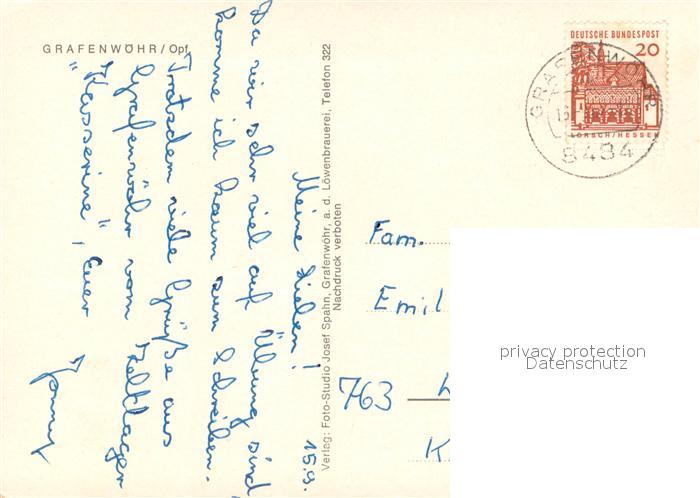 GRAFENWÖHR/Opf.
Meine Lieben! 15.9.
Da wir sehr viel auf Übung sind,
komme ich kaum zum Schreiben.
Trotzdem viele Grüße aus
Grafenwöhr vom Zeltlager
"Kasserine", Euer
Verlag: Foto-Studio Josef Spahn, Grafenwöhr, a. d. Löwenbrauerei, Telefon 322
Nachdruck verboten
DEUTSCHE BUNDESPOST
20
LORSCH/HESSEN
GRAFENWÖHR
8484
Fam.
Emil
763
K
privacy protection
Datenschutz